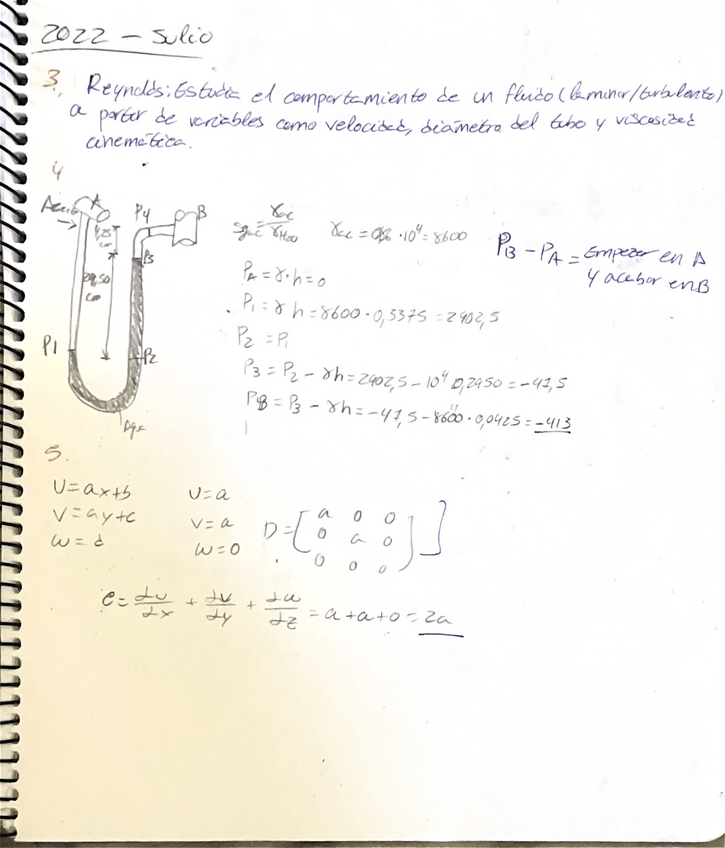 2022 - Julio
3. Reynolds: Estudia el comportamiento de un fluido (laminar/turbulento)
a partir de variables como velocidad, diámetro del tubo y viscosidad
cinemática.
4
Aceite A P4 B
4,25 cm
P3
29,50 cm
P1 P2
Agua
γac = 0,86 · 10⁴ = 8600
PB - PA = Empezar en A
y acabar en B
PA = γ·h = 0
P1 = γ h = 8600 · 0,3375 = 2902,5
P2 = P1
P3 = P2 - γh = 2902,5 - 10⁴ 0,2950 = -47,5
PB = P3 - γh = -47,5 - 8600 · 0,0425 = -413
5.
U = ax+b U = a
V = ay+c V = a
W = d W = 0
D = [a 0 0
0 a 0
0 0 0]
e = du/dx + dv/dy + dw/dz = a + a + 0 = 2a